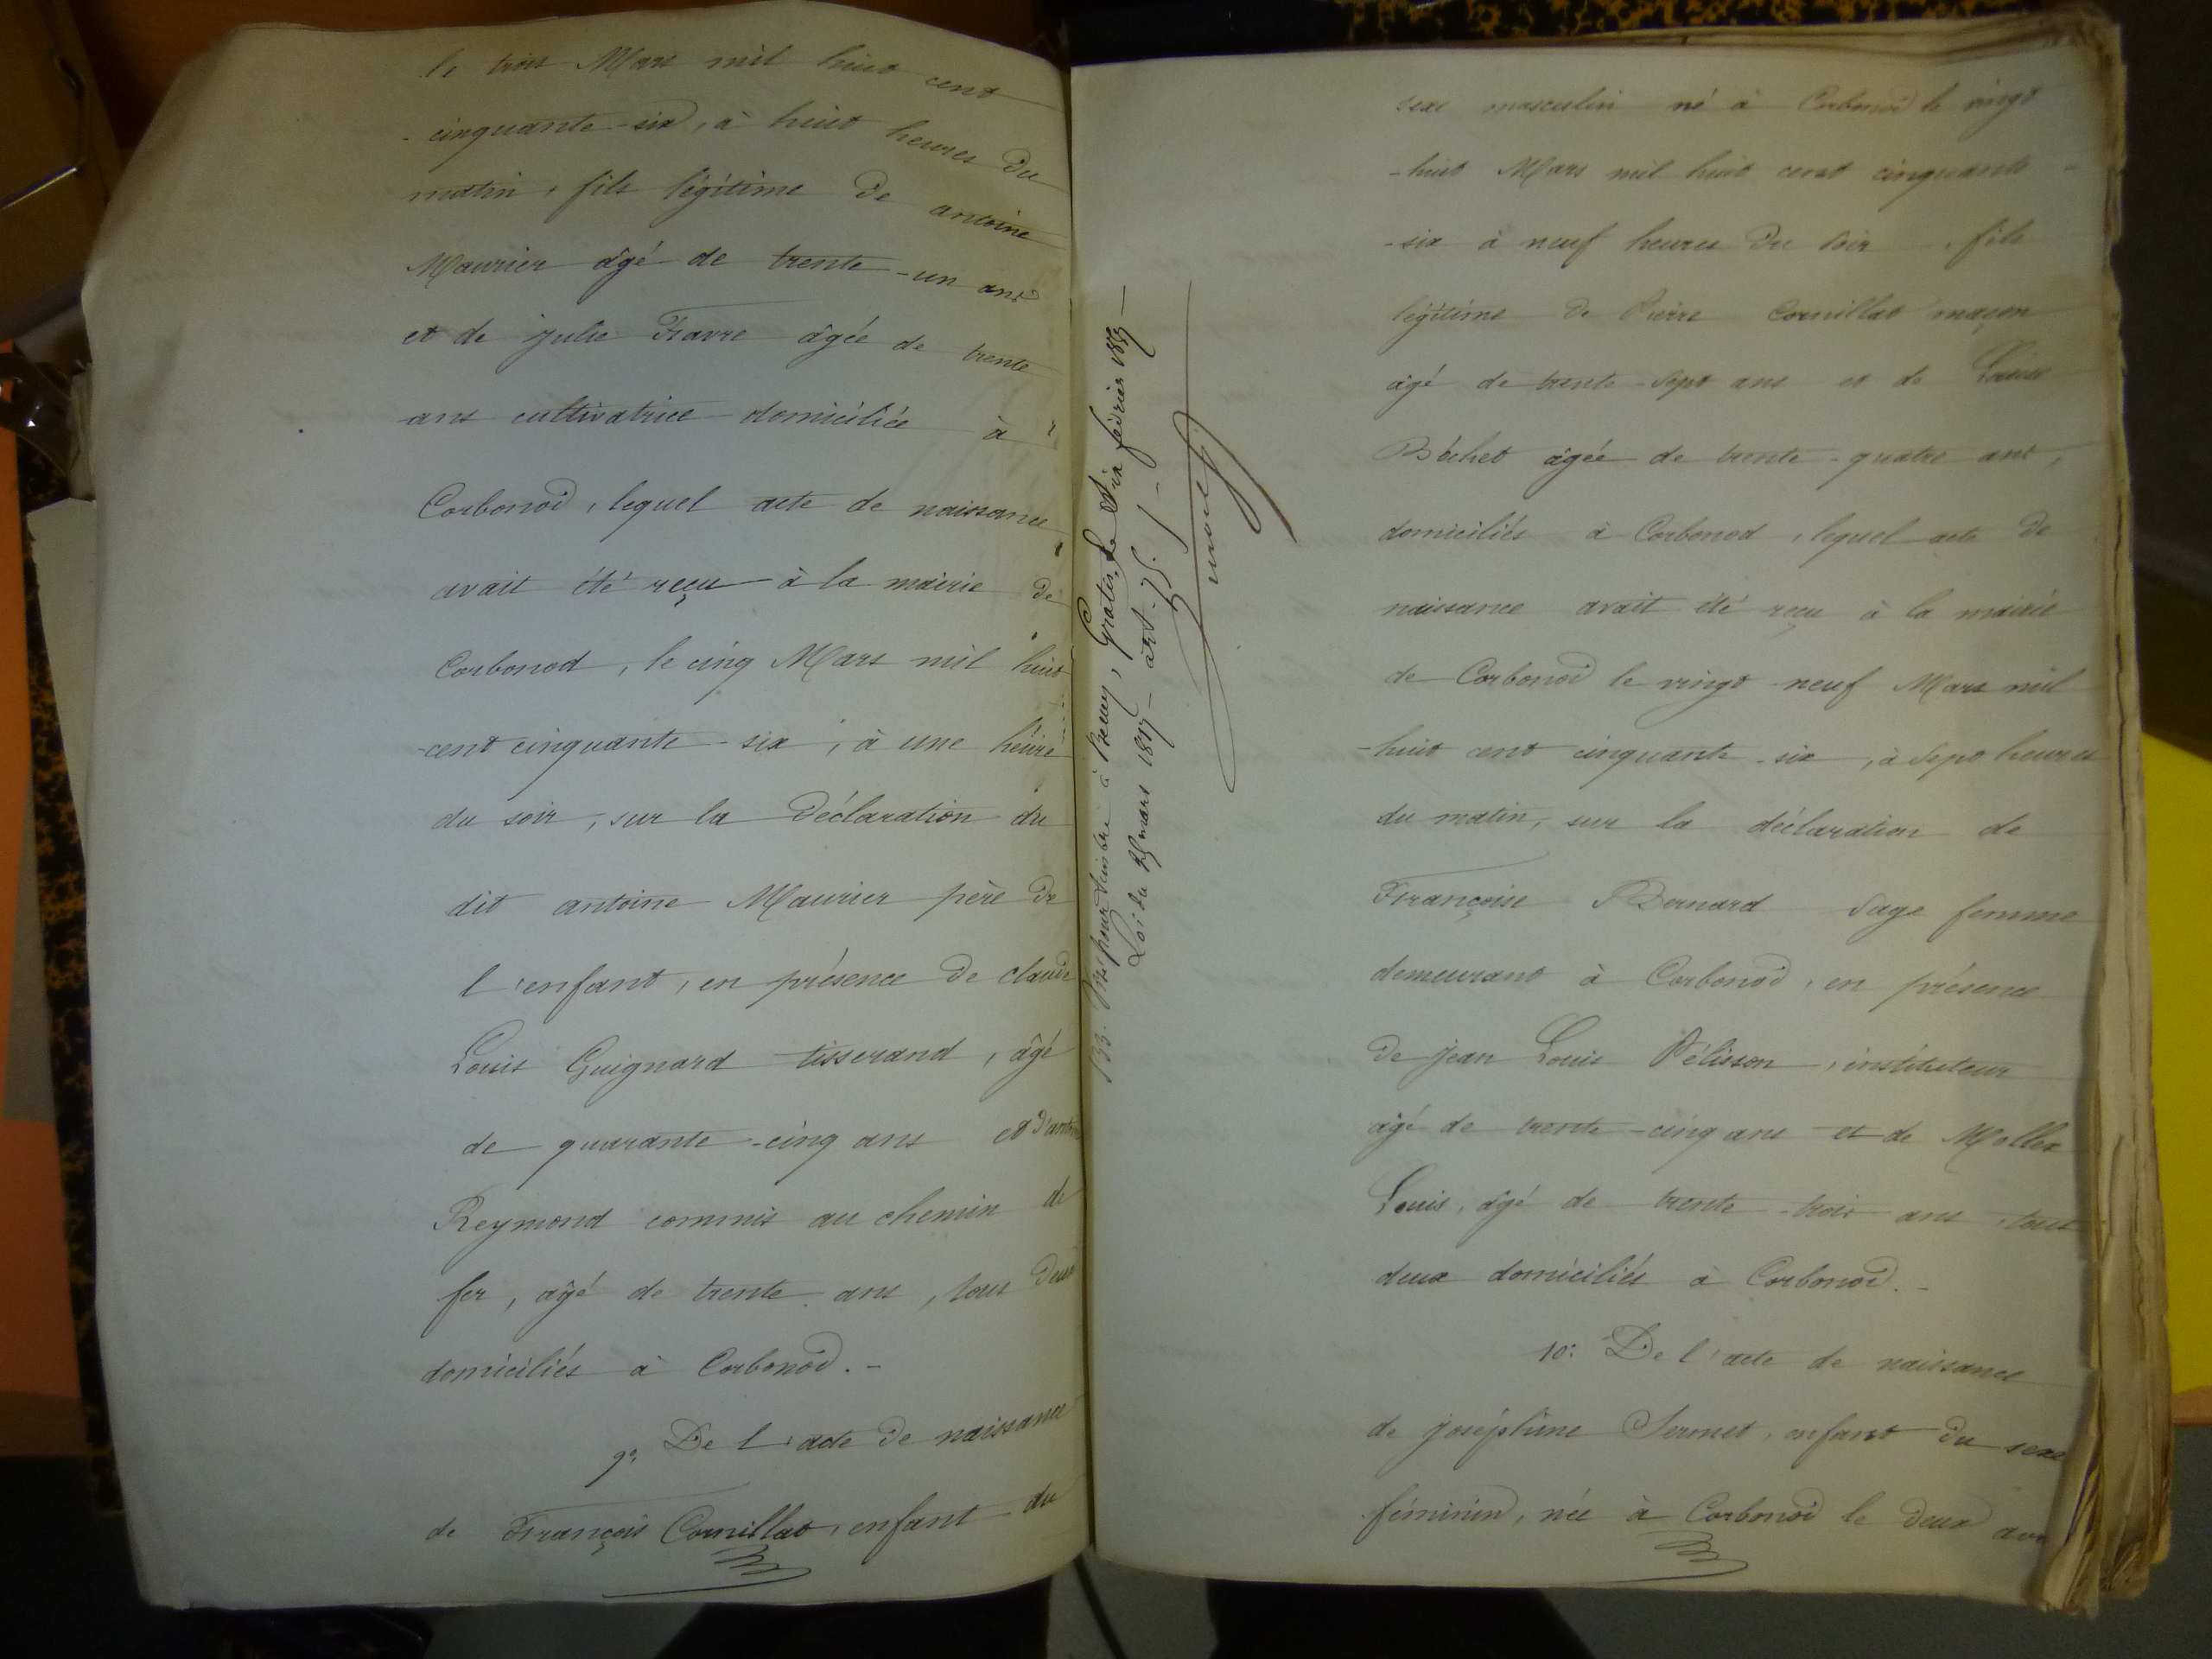 le trois Mars mil huit cent
cinquante-six, à huit heures du
matin, fils légitime de antoine
Maurier âgé de trente-un ans
et de julie Favre âgée de trente
ans cultivatrice domiciliée à
Corbonod, lequel acte de naissance
avait été reçu à la mairie de
Corbonod, le cinq Mars mil huit
cent cinquante-six, à une heure
du soir, sur la Déclaration du
dit antoine Maurier père de
l'enfant, en présence de claude
Louis Guignard tisserand, âgé
de quarante-cinq ans et d'antoine
Reymond commis au chemin de
fer, âgé de trente ans, tous deux
domiciliés à Corbonod.-
9°. De l'acte de naissance
de François Cornillat, enfant du
133. Visé pour timbre à, Gratis, le Six février 189
Loi du 25 mars 1817 - art. 75. -
sexe masculin né à Corbonod le vingt
-huit Mars mil huit cent cinquante
-six à neuf heures du soir, fils
légitime de Pierre Cornillat maçon
âgé de trente-sept ans et de Louise
Béchet âgée de trente-quatre ans,
domiciliés à Corbonod, lequel acte de
naissance avait été reçu à la mairie
de Corbonod le vingt neuf Mars mil
-huit cent cinquante-six, à sept heures
du matin, sur la déclaration de
Françoise Bernard sage femme
demeurant à Corbonod, en présence
de jean Louis Pélisson, instituteur
âgé de trente-cinq ans et de Mollex
Louis, âgé de trente-trois ans, tous
deux domiciliés à Corbonod.-
10°. De l'acte de naissance
de joséphine Seronet, enfant du sexe
féminin, née à Corbonod le deux avr